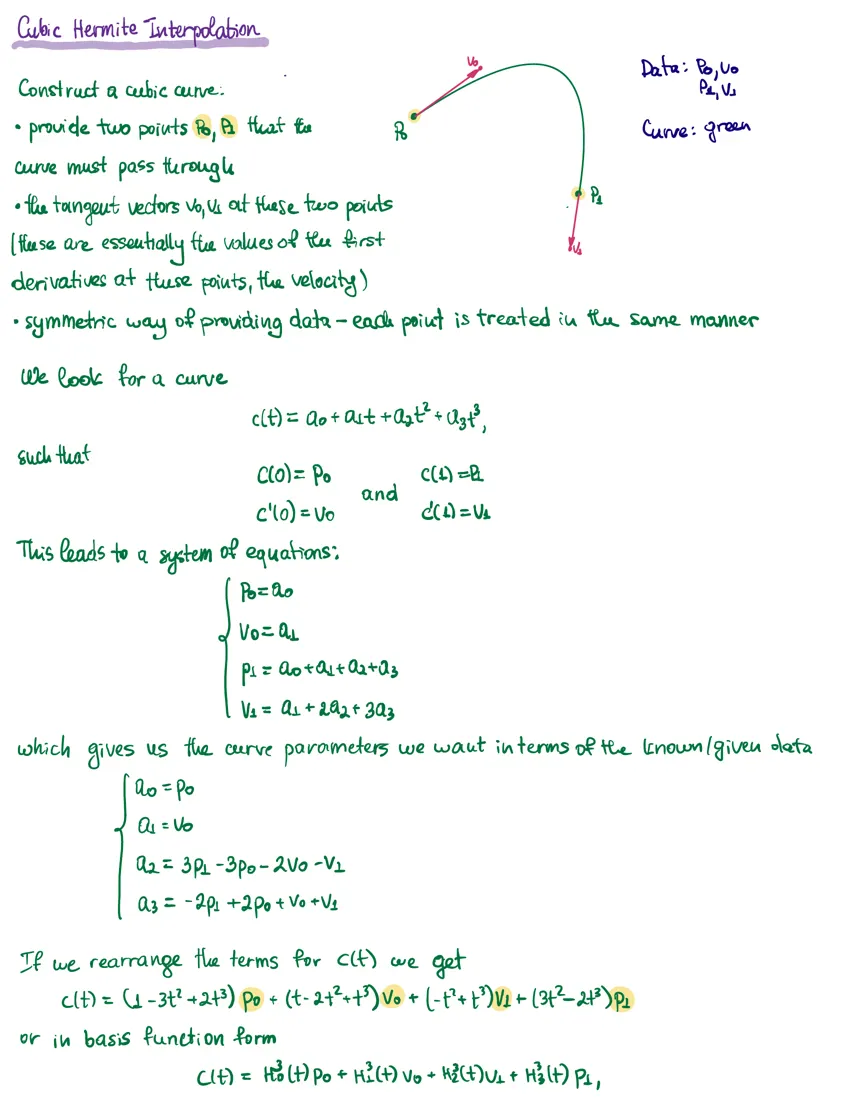 Cubic Hermite Interpolation
Construct a cubic curve:
• provide two points P₀, P₁ that the
curve must pass through
• the tangent vectors v₀, v₁ at these two points
(these are essentially the values of the first
derivatives at these points, the velocity)
• symmetric way of providing data – each point is treated in the same manner
v₀
P₀
P₁
v₁
Data: P₀, v₀
P₁, v₁
Curve: green
We look for a curve
c(t) = a₀ + a₁t + a₂t² + a₃t³,
such that
c(0) = P₀ and c(1) = P₁
c'(0) = v₀ c'(1) = v₁
This leads to a system of equations:
P₀ = a₀
v₀ = a₁
P₁ = a₀ + a₁ + a₂ + a₃
v₁ = a₁ + 2a₂ + 3a₃
which gives us the curve parameters we want in terms of the known/given data
a₀ = p₀
a₁ = v₀
a₂ = 3p₁ - 3p₀ - 2v₀ - v₁
a₃ = -2p₁ + 2p₀ + v₀ + v₁
If we rearrange the terms for c(t) we get
c(t) = (1 - 3t² + 2t³) p₀ + (t - 2t² + t³) v₀ + (-t² + t³) v₁ + (3t² - 2t³) p₁
or in basis function form
c(t) = H₀³(t) p₀ + H₁³(t) v₀ + H₂³(t) v₁ + H₃³(t) p₁,